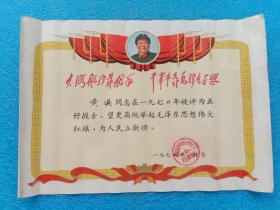 大海航行靠舵手 干革命靠毛泽东思想
黄瑛同志在一九七〇年被评为五
好战士，望更高地举起毛泽东思想伟大
红旗，为人民立新功。
一九七
月